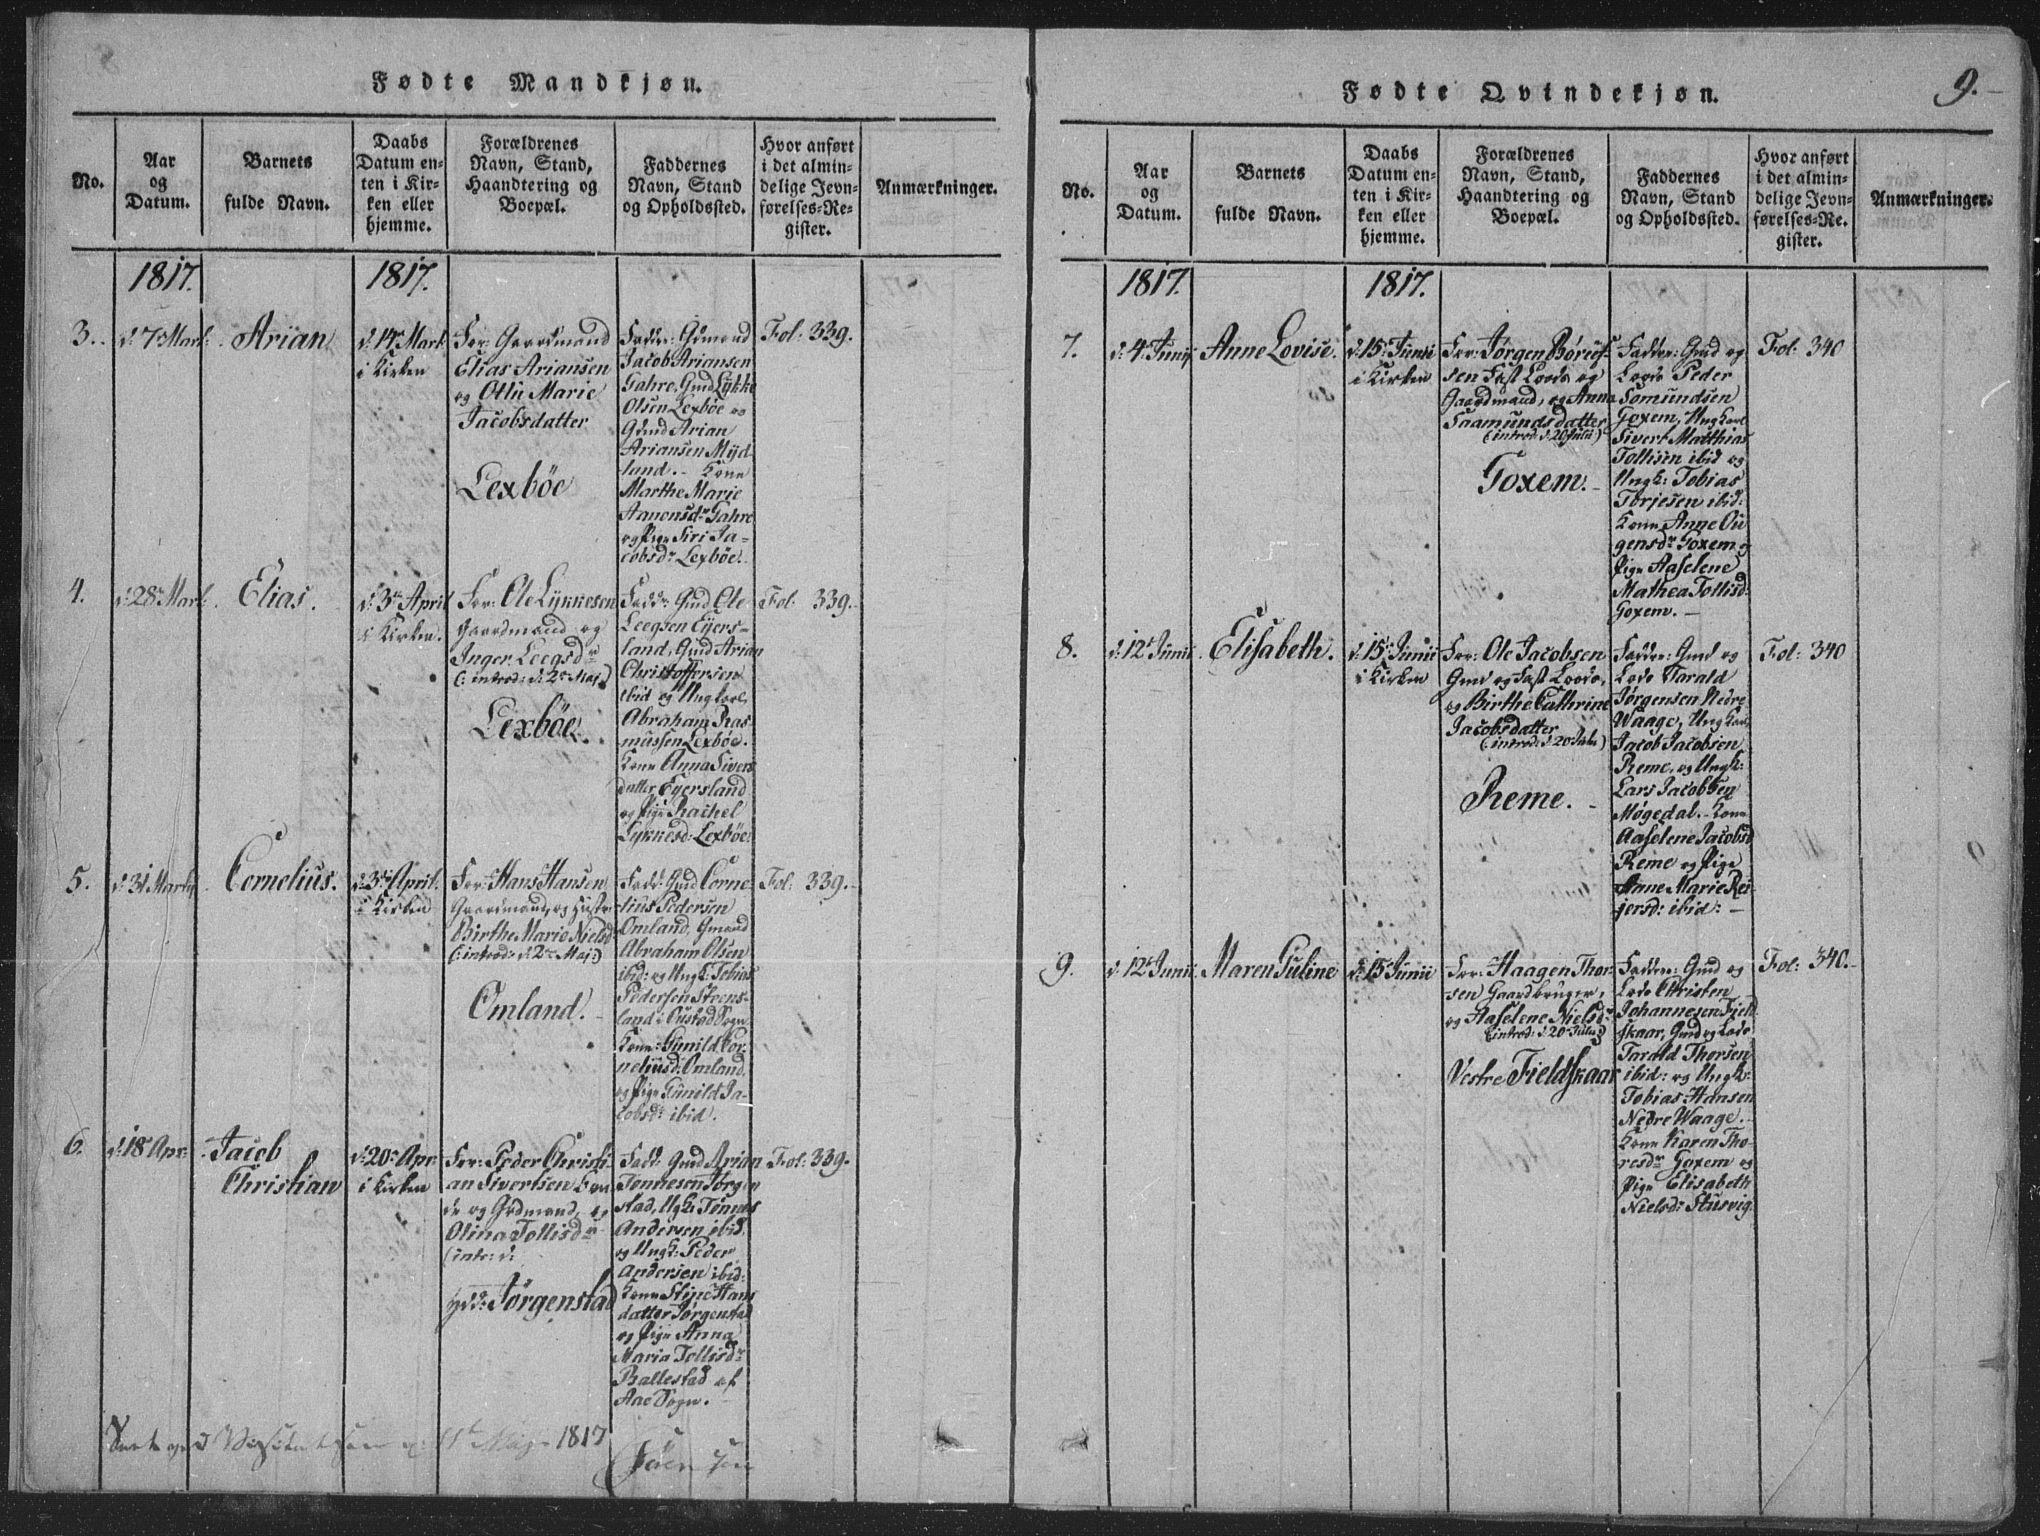 Fødte Mandkjøn.
No.
Aar
og
Datum.
Barnets
fulde Navn.
Daabs
Datum en-
ten i Kir-
ken eller
hjemme.
Forældrenes
Navn, Stand,
Haandtering og
Boepæl.
Faddernes
Navn, Stand
og Opholdssted.
Hvor anført
i det almin-
delige Jevn-
førelses-Re-
gister.
Anmærkninger.
1817.
1817.
3.
d: 7 Mart:
Arian
d: 14 Mart:
i Kirken
For: Gaardmand
Elias Ariansen
og Olin Marie
Jacobsdatter
Lexbøe
Faddr: Gdmand
Jacob Ariansen
Jahre, Gmd Lykke
Olsen Lexbøe og
Gdmd Arian
Ariansen Myd-
land. - Kone
Marthe Marie
Aanonsdr Jahre
og Pige Siri Ja-
cobsdr Lexbøe.
Fol: 339.
4.
d: 28 Mart:
Elias.
d: 3 April
i Kirken.
For: Ole Lykkesen
Gaardmand og
Inger Leegsdr
(: introd: d: 2 Maj)
Lexbøe.
Faddr: Gmd Ole
Leegsen Eyers-
land, Gmd Arian
Christoffersen
ibid og Ungkarl
Abraham Ras-
mussen Lexbøe.
Kone Anna Sivers
datter Eyersland
og Pige Rachel
Lykkesd: Lexbøe.
Fol: 339.
5.
d: 31 Martij
Cornelius.
d: 3 April.
i Kirken
For: Hans Hansen
Gaardmand, og Hustr:
Birthe Marie Nielsd
(: introd: d: 2 Maj)
Omland.
Fadd: Gmd Corne-
lius Pedersen
Omland, Gmand
Abraham Olsen
ibid: og Ungk: Tobias
Pedersen Steens-
land i Oustad Sogn
Kone: Gunild Cor-
neliusd: Omland,
og Pige Gunild Ja-
cobsd: ibid.
Fol: 339.
6.
d: 18 Apr:
Jacob
Christian
d: 20 Apr:
i Kirken
For: Peder Christi-
an Sivertsen
og Grdmand, og
Olina Tollisdr
(intr: d:
Jørgenstad
Fadd: Gmd Arian
Tønnesen Jørgen-
stad, Ugk: Tønnes
Andersen ibid.
og Ungk: Peder
Andersen ibid:
Kone Stine Hans
datter Jørgenstad
og Pige Anna
Maria Tollisdr
Ballestad af
Aae Sogn.
Fol: 339.
1817
Fødte Qvindekjøn.
9.
No.
Aar
og
Datum.
Barnets
fulde Navn.
Daabs
Datum en-
ten i Kir-
ken eller
hjemme.
Forældrenes
Navn, Stand,
Haandtering og
Boepæl.
Faddernes
Navn, Stand
og Opholdssted.
Hvor anført
i det almin-
delige Jevn-
førelses-Re-
gister.
Anmærkninger.
1817.
1817.
7.
d: 4 Junij
Anne Lovise.
d: 15 Junii
i Kirken
For: Jørgen Børuf-
sen Fast Loods og
Gaardmand, og Anna
Saamundsdatter
(introd: d: 20 Julii)
Goxem.
Faddre: Gmd og
Loods Peder
Somundsen
Goxem, Ungkarl
Sivert Matthias
Tollisen ibid og
Ungk: Tobias
Torjesen ibid:
Kone Anne Ou-
gensdr Goxem og
Pige Aaselene
Mathea Tollisd:
Goxem.
Fol: 340
8.
d: 12 Junii
Elisabeth.
d: 15 Junii
i Kirken
For: Ole Jacobsen
Gmd og Fast Loods,
og Birthe Cathrine
Jacobsdatter
(: introd: d: 20 Julii)
Reme.
Faddre: Gmd og
Lods Tarald
Jørgensen Nedre
Waage, Ungkarl
Jacob Jacobsen
Reme, og Ungk:
Lars Jacobsen
Møgedal. - Kone
Aaselene Jacobsd
Reme og Pige
Anne Marie Rei-
jersd: ibid:
Fol: 340
9.
d: 12 Junii
Maren Guline
d: 15 Junii
For: Haagen Thor-
sen Gaardbruger,
og Aaselene Nielsdr
(introd: d: 20 Julii)
Vestre Fieldskaar
Faddre: Gmd og
Lods Christen
Johannesen Field-
skaar, Gmd og Lods
Tarald Thorsen
ibid: og Ungk:
Tobias Hansen
Nedre Waage.
Kone Karen Tho-
resdr Goxem og
Pige Elisabeth
Nielsd: Stusvig
Fol: 340.